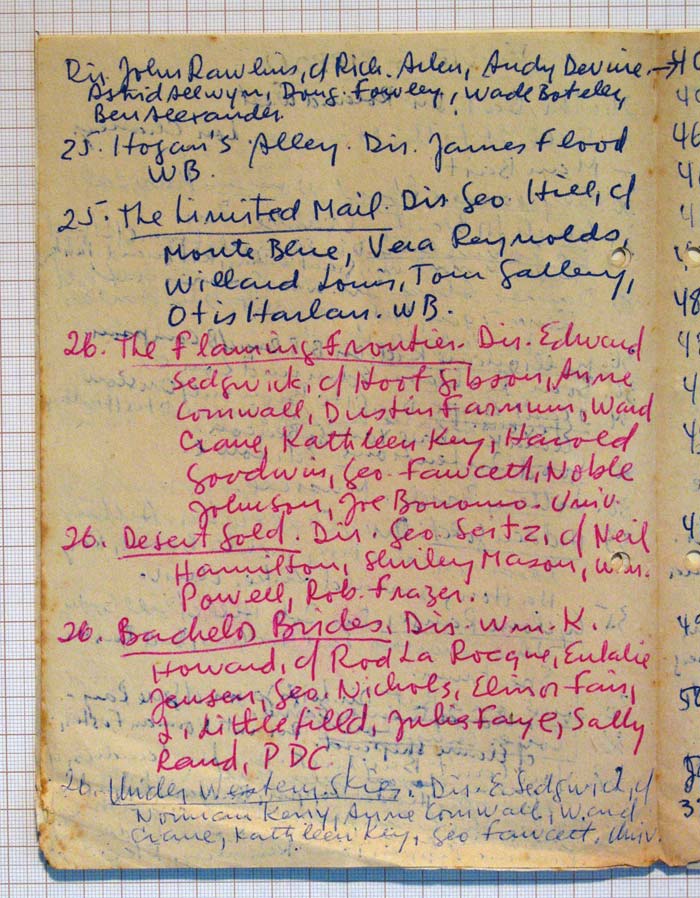 Dir. John Rawlins, c/ Rich. Arlen, Andy Devine →
Astrid Allwyn, Doug. Fowley, Wade Boteler,
Ben Alexander.
25. Hogan's Alley. Dir. James Flood
WB.
25. The Limited Mail. Dir Geo Hill, c/
Monte Blue, Vera Reynolds,
Willard Louis, Tom Gallery,
Otis Harlan. WB.
26. The Flaming Frontier. Dir. Edward
Sedgwick, c/ Hoot Gibson, Anne
Cornwall, Dustin Farnum, Ward
Crane, Kathleen Key, Harold
Goodwin, Geo. Fawcett, Noble
Johnson, Joe Bonomo. Univ.
26. Desert Gold. Dir. Geo Seitz, c/ Neil
Hamilton, Shirley Mason, Wm.
Powell, Rob. Frazer.
26. Bachelor Brides. Dir Wm. K.
Howard, c/ Rod La Rocque, Eulalie
Jensen, Geo. Nichols, Elinor Fair,
L. Littlefield, Julia Faye, Sally
Rand, PDC
26. Under Western Skies. Dir. E. Sedgwick, c/
Norman Kerry, Anne Cornwall, Ward
Crane, Kathleen Key, Geo Fawcett, Univ.
46
48
3